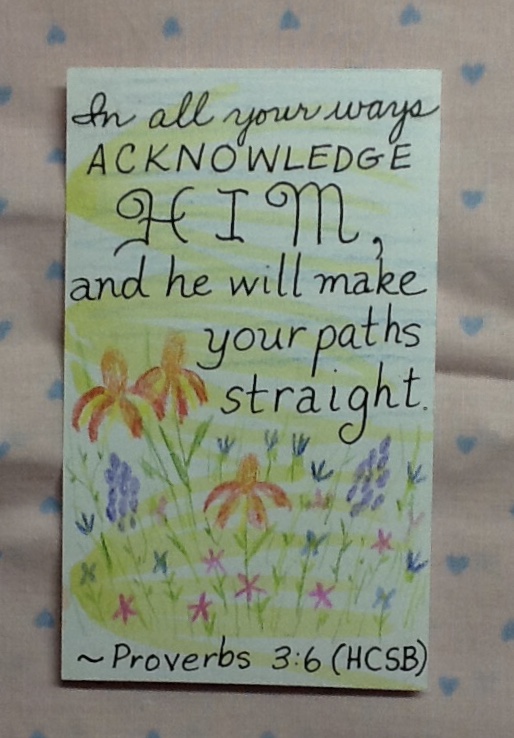 In all your ways
ACKNOWLEDGE
HIM,
and he will make
your paths
straight.
~Proverbs 3:6 (HCSB)